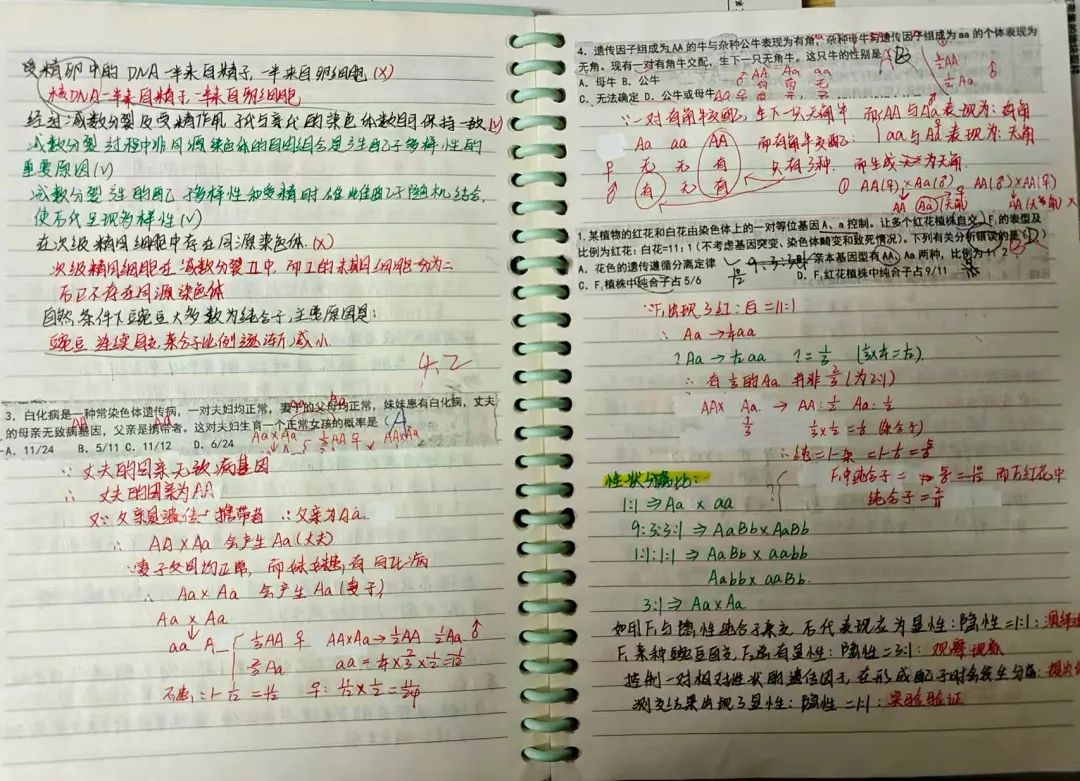 受精卵中的DNA一半来自精子,一半来自卵细胞(X)
核DNA一半来自精子,一半来自卵细胞
经过减数分裂及受精作用,子代与亲代的染色体数目保持一致(V)
减数分裂过程中非同源染色体的自由组合是产生配子多样性的
重要原因(V)
减数分裂产生的配子多样性和受精时雌雄配子随机结合,
使后代呈现多样性(V)
在次级精母细胞中存在同源染色体.(X)
次级精母细胞在减数分裂II中,而I的末期细胞一分为二
后已不存在同源染色体
自然条件下豌豆大多数为纯合子,主要原因是:
豌豆连续自交,杂合子比例逐渐减小
4.2
3. 白化病是一种常染色体遗传病,一对夫妇均正常,妻子的父母均正常,妹妹患有白化病,丈夫
的母亲无致病基因,父亲是携带者。这对夫妇生育一个正常女孩的概率是
A. 11/24 B. 5/11 C. 11/12 D. 6/24
∵丈夫的母亲无致病基因
∴丈夫的母亲为AA
又∵父亲是携带者 ∴父亲为Aa.
∴AA×Aa 会产生Aa(丈夫)
∵妻子父母均正常,而妹妹患有白化病
∴Aa×Aa 会产生Aa(妻子)
Aa × Aa
aa A_ 1/3AA ♀ AA×Aa→1/2AA 1/2Aa ♂
2/3Aa. aa=1/4×2/3×1/2=1/12
正常:1-1/12=11/12 ♀:11/12×1/2=11/24
4. 遗传因子组成为AA的牛与杂种公牛表现为有角,杂种母牛与遗传因子组成为aa的个体表现为
无角。现有一对有角牛交配,生下一只无角牛。这只牛的性别是
A. 母牛 B. 公牛
C. 无法确定 D. 公牛或母牛
∵一对有角牛交配,生下一只无角牛 而AA与Aa♂表现为:有角
Aa aa AA 而有角牛交配: aa与Aa♀表现为:无角
♀ 无 无 有 只有3种. 而生成为无角.
♂ 有 无 有 ① AA(♀)×Aa(♂) AA(♂)×AA(♀)
1. 某植物的红花和白花由染色体上的一对等位基因A、a控制。让多个红花植株自交,F₁的表型及
比例为红花:白花=11:1(不考虑基因突变、染色体畸变和致死情况)。下列有关分析错误的是(D)
A. 花色的遗传遵循分离定律 亲本基因型有AA、Aa两种,比例为1:2
C. F₁植株中纯合子占5/6 D. F₁红花植株中纯合子占9/11
∵F₁出现了红:白=11:1
∴Aa→1/4aa
?Aa→1/12aa ?=1/3
∴有1/3的Aa 并非2/3(为2:1)
AA× Aa. → AA:1/2 Aa:1/2
1/3 1/3×1/2=1/6(杂合子)
∴纯=1-杂=1-1/6=5/6
F₁中纯合子=5/6=10/12 而F₁红花中
纯合子=9/11
性状分离比:
1:1⇒Aa × aa
9:3:3:1⇒AaBb×AaBb
1:1:1:1⇒AaBb×aabb
Aabb×aaBb.
3:1⇒Aa×Aa.
如用F₁与隐性纯合子杂交,后代表现应为显性:隐性=1:1:
F₁杂种豌豆自交,F₂会有显性:隐性=3:1:观察现象
控制一对相对性状的遗传因子,在形成配子时会发生分离:
测交结果出现了显性:隐性=1:1:实验验证